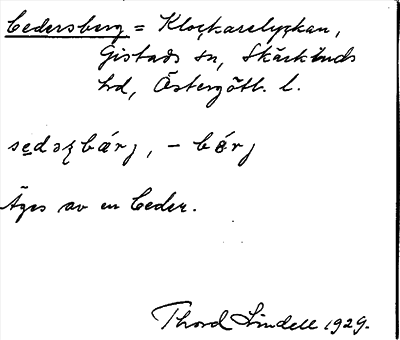 Cedersberg = Klockarelyckan,
Gistads sn, Skärkinds
hd, Östergötl. l.
sedəʐbærj, – bǿrj
Äges av en Ceder.
Thord Lindell 1929.